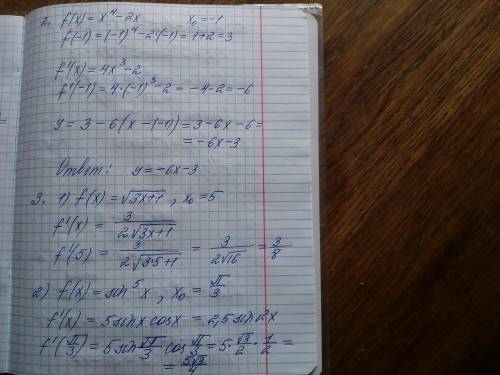 2. f(x) = x⁴ - 2x      x₀ = -1
f(-1) = (-1)⁴ - 2·(-1) = 1+2 = 3
f'(x) = 4x³ - 2
f'(-1) = 4·(-1)³ - 2 = -4-2 = -6
y = 3 - 6(x-(-1)) = 3 - 6x - 6 =
= -6x - 3
Ответ:   y = -6x - 3
3. 1) f(x) = √(3x+1) , x₀ = 5
f'(x) = 3/(2√(3x+1))
f'(5) = 3/(2√(3·5+1)) = 3/(2√16) = 3/8
2) f(x) = sin⁵x , x₀ = π/3
f'(x) = 5 sin x cos x = 2,5 sin 2x
f'(π/3) = 5 sin π/3 cos π/3 = 5·√3/2·1/2 =
= 5√3/4